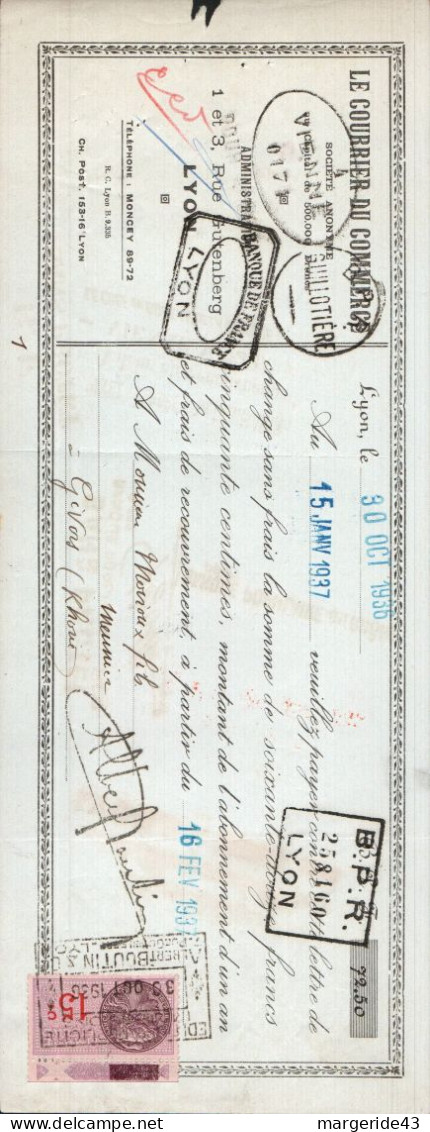 LE COURRIER DU COMMERCE
SOCIÉTÉ ANONYME
au Capital de 500.000 francs
VIENNE
0171
GUILLOTIÈRE
BANQUE DE FRANCE
LYON LYON
1 et 3, Rue Gutenberg
LYON
TÉLÉPHONE : MONCEY 89-72
R. C. Lyon B 9.335
CH. Post. 153-16 LYON
Lyon, le 30 OCT 1936
B.P.R.
258160
LYON
72.50
Au 15 JANV 1937 veuillez payer contre cette lettre de
change sans frais la somme de soixante-douze francs
cinquante centimes, montant de l'abonnement d'un an
et frais de recouvrement, à partir du 16 FEV 1937
A Monsieur fils
à Givors (Rhône)
ALBERT BOUTIN &
30 OCT 1936
15c
delcampe.net
margeride43